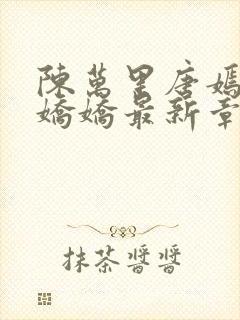 陳萬里唐嫣
嬌嬌最新章
抹茶醬醬